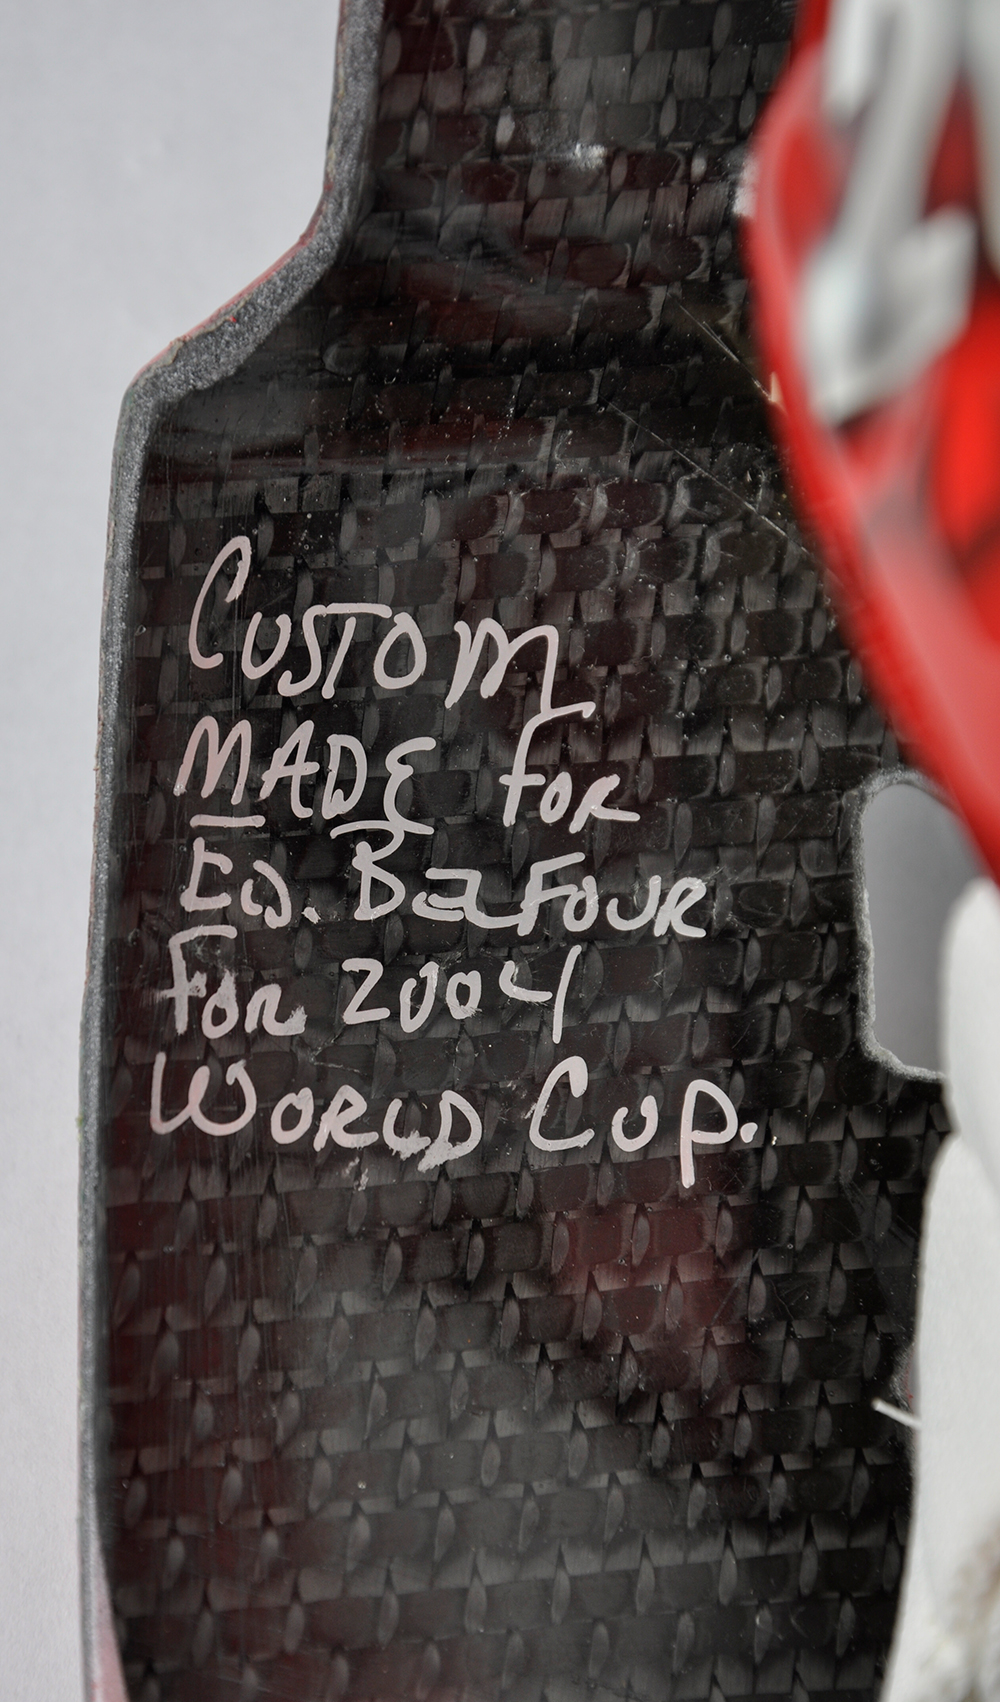 CUSTOM
MADE FOR
ED. BELFOUR
FOR 2004
WORLD CUP.